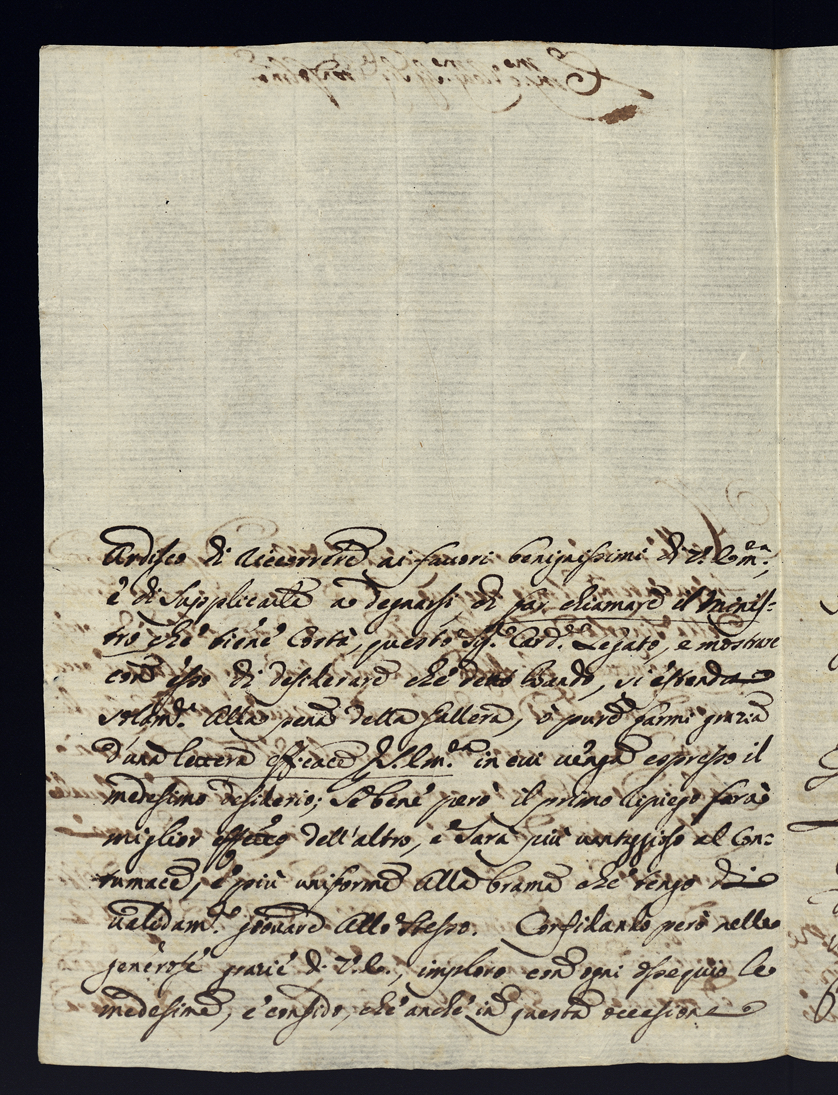 Ardisco di ricorrere ai favori benignissimi di V. Em.ª,
e di supplicarla a degnarsi, di far chiamare il Minis-
tro che tiene Costà, questo Sig.r Card.e Legato, e mostrare
con esso di desiderare che bando, si estenda
solam.e alla pena della Gallera, o pure farmi grazia
d'una lettera efficace Em.ª in cui venga espresso il
medesimo desiderio; se bene però il primo ripiego farà
miglior effetto dell'altro, e sarà più vantaggioso al Con-
tumace, e più uniforme alla brama che tengo di
validam.e giovare allo stesso. Confidando però nelle
generose grazie di V. E., imploro con ogni ossequio le
medesime, e confido, che anche in questa occasione